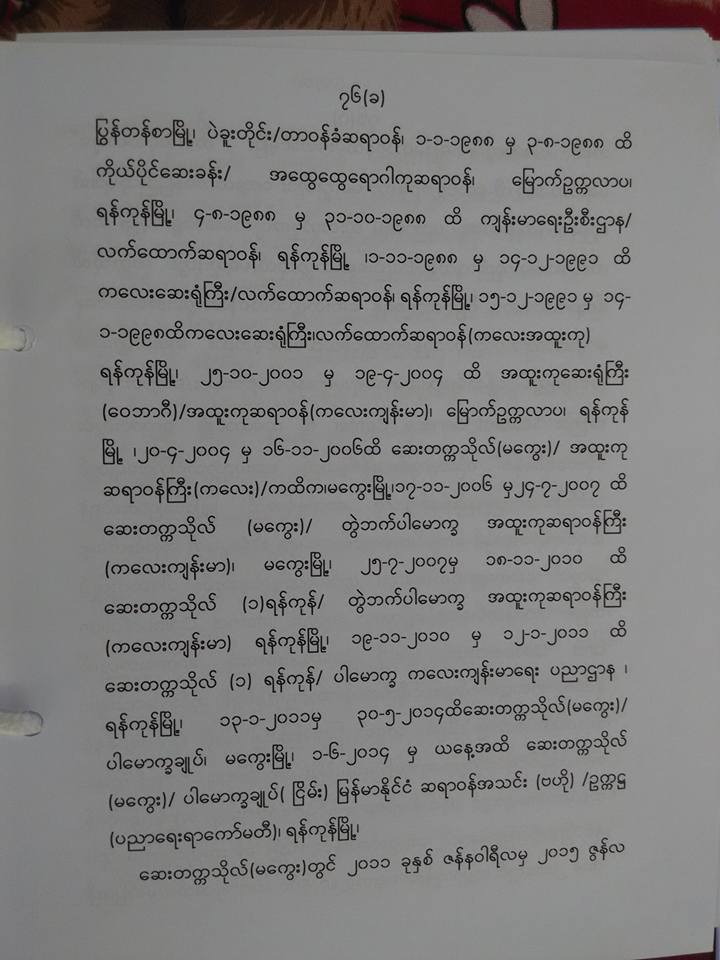 ၇၆(ခ)
ပြွန်တန်စာမြို့၊ ပဲခူးတိုင်း/တာဝန်ခံဆရာဝန်၊ ၁-၁-၁၉၈၈ မှ ၃-၈-၁၉၈၈ ထိ
ကိုယ်ပိုင်ဆေးခန်း/ အထွေထွေရောဂါကုဆရာဝန်၊ မြောက်ဥက္ကလာပ၊
ရန်ကုန်မြို့၊ ၄-၈-၁၉၈၈ မှ ၃၁-၁၀-၁၉၈၈ ထိ ကျန်းမာရေးဦးစီးဌာန/
လက်ထောက်ဆရာဝန်၊ ရန်ကုန်မြို့ ၊၁-၁၁-၁၉၈၈ မှ ၁၄-၁၂-၁၉၉၁ ထိ
ကလေးဆေးရုံကြီး/လက်ထောက်ဆရာဝန်၊ ရန်ကုန်မြို့၊ ၁၅-၁၂-၁၉၉၁ မှ ၁၄-
၁-၁၉၉၈ထိကလေးဆေးရုံကြီး၊လက်ထောက်ဆရာဝန်(ကလေးအထူးကု)
ရန်ကုန်မြို့၊ ၂၅-၁၀-၂၀၀၁ မှ ၁၉-၄-၂၀၀၄ ထိ အထူးကုဆေးရုံကြီး
(ဝေဘာဂီ)/အထူးကုဆရာဝန်(ကလေးကျန်းမာ)၊ မြောက်ဥက္ကလာပ၊ ရန်ကုန်
မြို့ ၊၂၀-၄-၂၀၀၄ မှ ၁၆-၁၁-၂၀၀၆ထိ ဆေးတက္ကသိုလ်(မကွေး)/ အထူးကု
ဆရာဝန်ကြီး(ကလေး)/ကထိက၊မကွေးမြို့၊၁၇-၁၁-၂၀၀၆ မှ၂၄-၇-၂၀၀၇ ထိ
ဆေးတက္ကသိုလ် (မကွေး)/ တွဲဘက်ပါမောက္ခ အထူးကုဆရာဝန်ကြီး
(ကလေးကျန်းမာ)၊ မကွေးမြို့၊ ၂၅-၇-၂၀၀၇မှ ၁၈-၁၁-၂၀၁၀ ထိ
ဆေးတက္ကသိုလ် (၁)ရန်ကုန်/ တွဲဘက်ပါမောက္ခ အထူးကုဆရာဝန်ကြီး
(ကလေးကျန်းမာ) ရန်ကုန်မြို့၊ ၁၉-၁၁-၂၀၁၀ မှ ၁၂-၁-၂၀၁၁ ထိ
ဆေးတက္ကသိုလ် (၁) ရန်ကုန်/ ပါမောက္ခ ကလေးကျန်းမာရေး ပညာဌာန ၊
ရန်ကုန်မြို့၊ ၁၃-၁-၂၀၁၁မှ ၃၀-၅-၂၀၁၄ထိဆေးတက္ကသိုလ်(မကွေး)/
ပါမောက္ခချုပ်၊ မကွေးမြို့၊ ၁-၆-၂၀၁၄ မှ ယနေ့အထိ ဆေးတက္ကသိုလ်
(မကွေး)/ ပါမောက္ခချုပ်( ငြိမ်း) မြန်မာနိုင်ငံ ဆရာဝန်အသင်း (ဗဟို) /ဥက္ကဋ္ဌ
(ပညာရေးရာကော်မတီ)၊ ရန်ကုန်မြို့၊
ဆေးတက္ကသိုလ်(မကွေး)တွင် ၂၀၁၁ ခုနှစ် ဇန်နဝါရီလမှ ၂၀၁၅ ဇွန်လ